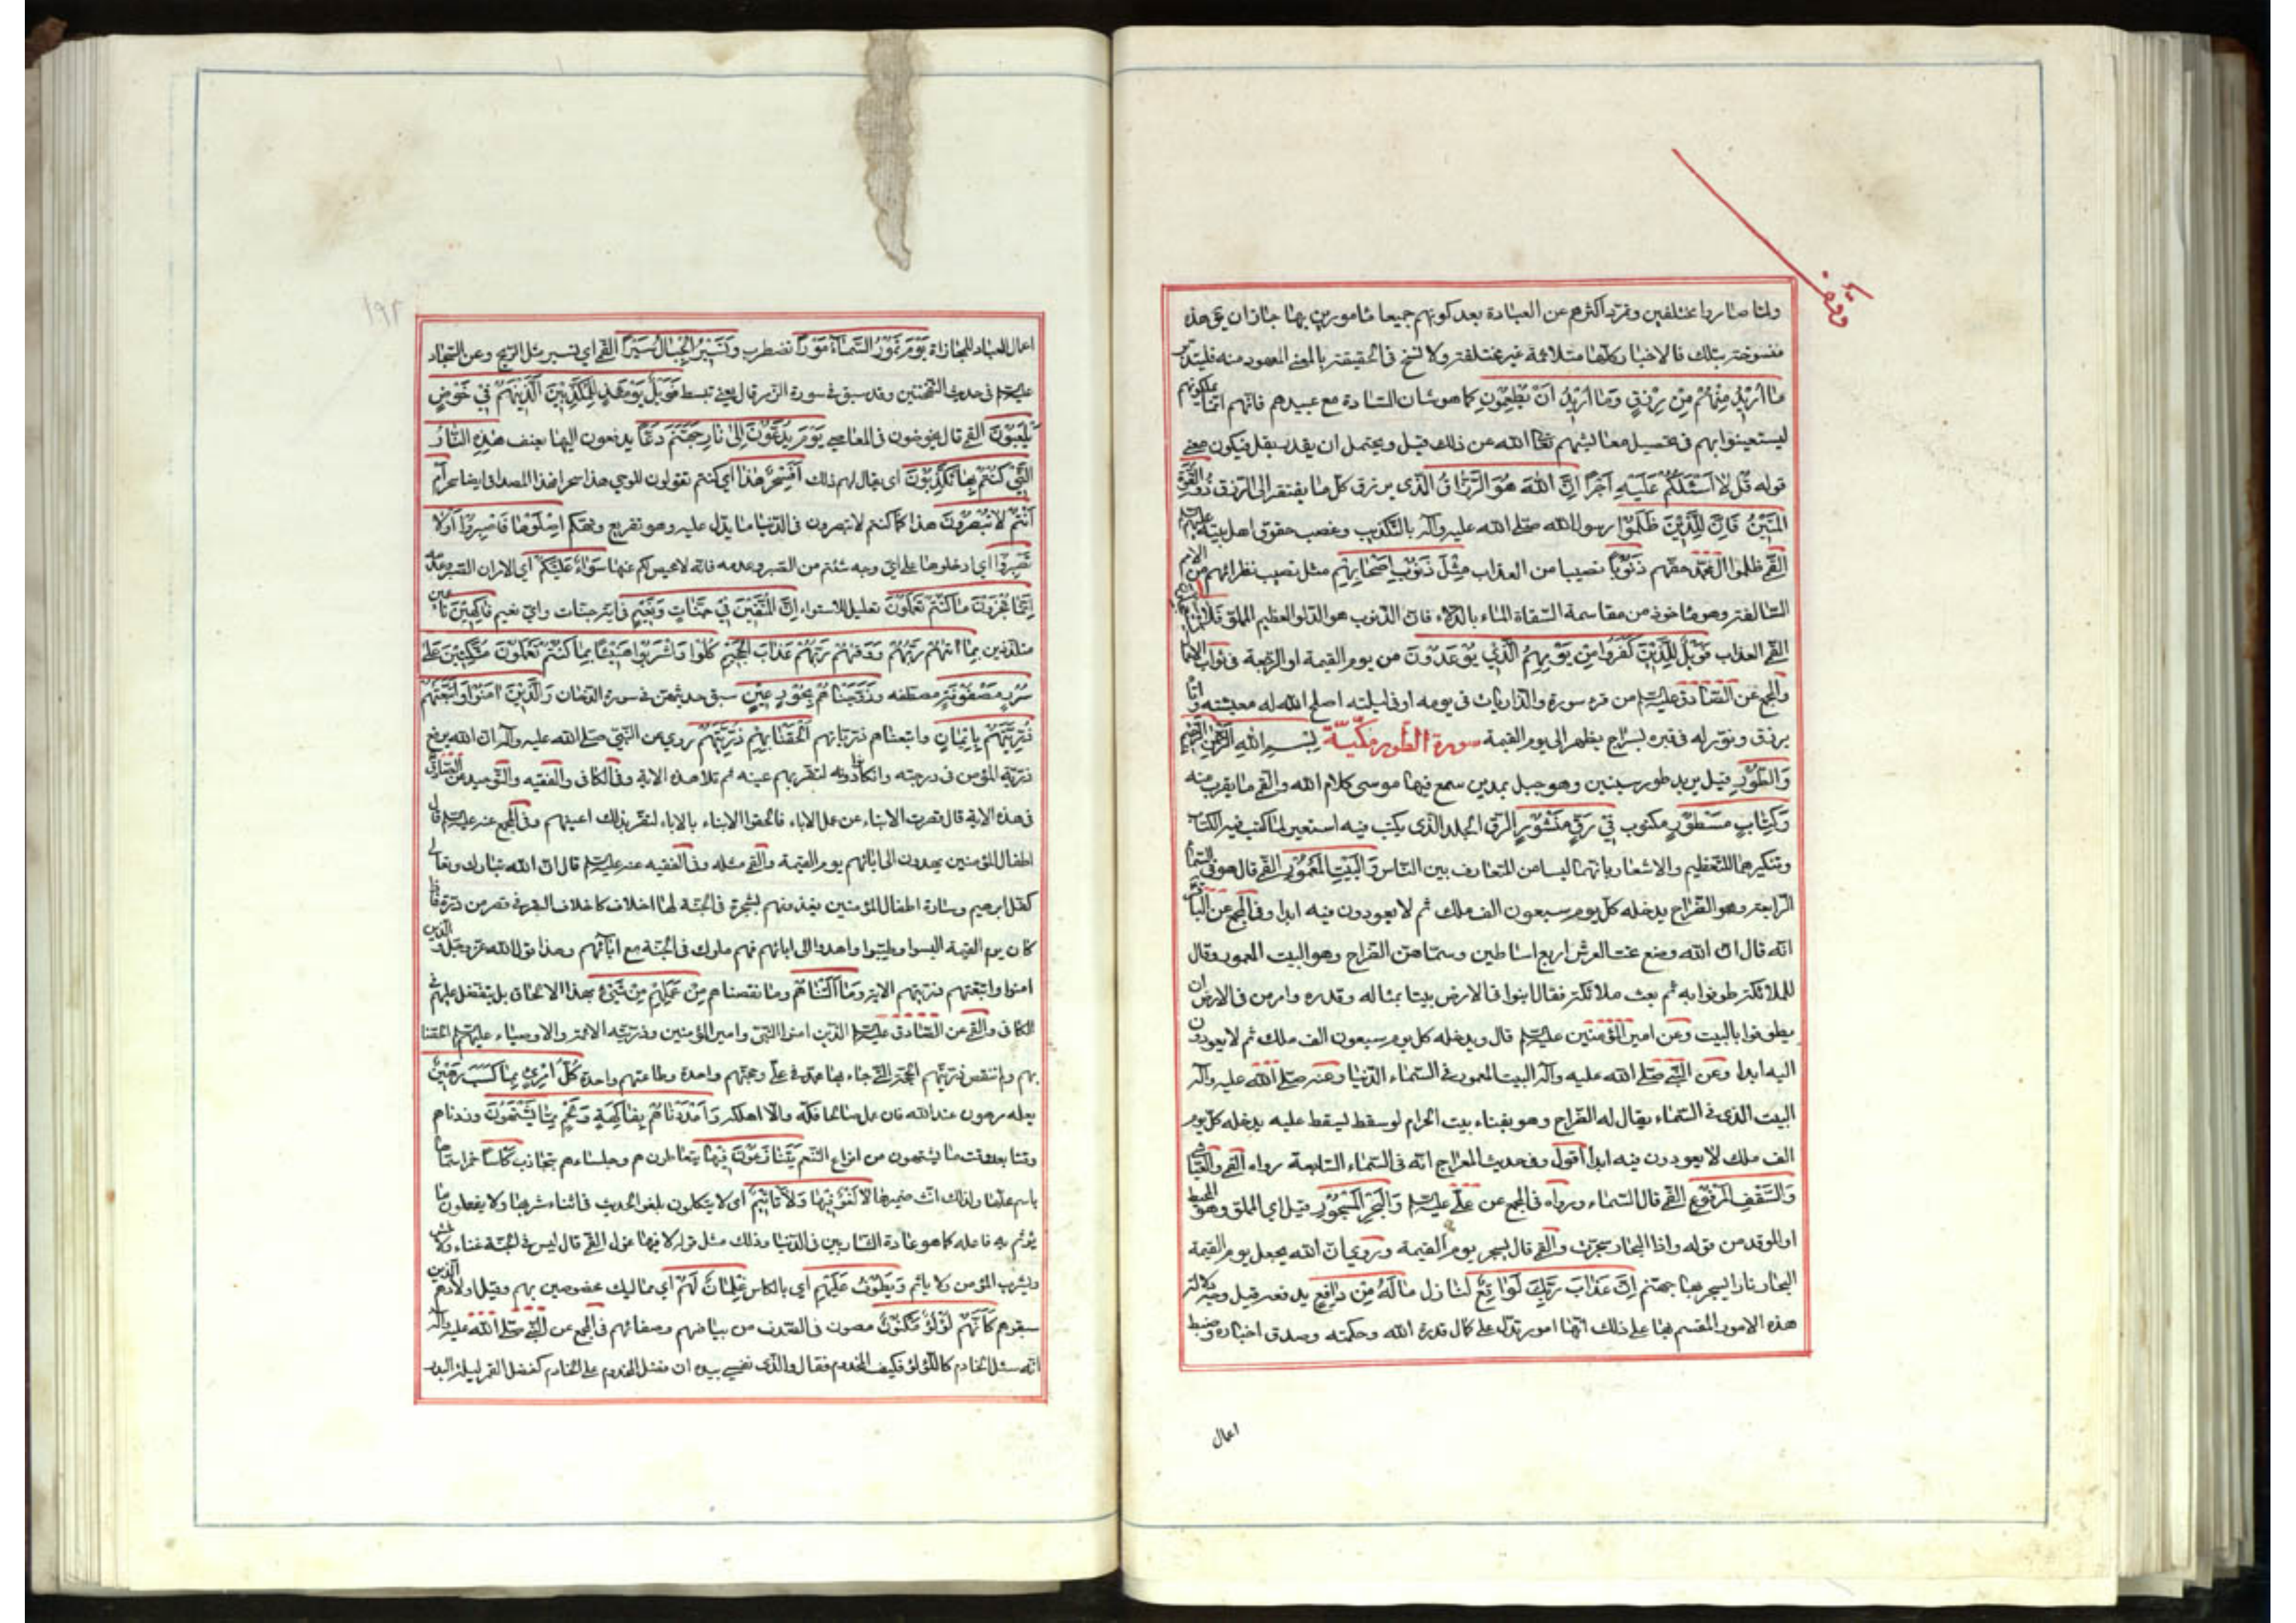 وقف
ولما صاروا مختلفين وتمرد اكثرهم عن العبادة بعد كونهم جميعا مامورين بها جاز ان يق هذه
منسوخة بتلك فالاخبار كلها متلائمة غير مختلفة ولا نسخ في الحقيقة بالمعنى المعهود منه فليتدبر
مَا اُرِيْدُ مِنْهُمْ مِنْ رِزْقٍ وَمَا اُرِيْدُ اَنْ يُطْعِمُوْنِ كما هو شان السادة مع عبيدهم فانهم انما يملكونهم
ليستعينوا بهم في تحصيل معايشهم تعالى الله عن ذلك قيل ويحتمل ان يقدر بقل فيكون معنى
قوله قُلْ لا اَسْئَلُكُمْ عَلَيْهِ اَجْرًا اِنَّ اللهَ هُوَ الرَّزَّاقُ الذي يرزق كل ما يفتقر الى الرزق ذُو الْقُوَّةِ
الْمَتِيْنُ فَاِنَّ لِلَّذِيْنَ ظَلَمُوْا رسول الله صلى الله عليه وآله بالتكذيب وغصب حقوق اهل بيته عليهم
القمي ظلموا آل محمد حقهم ذَنُوْبًا نصيبا من العذاب مِثْلَ ذَنُوْبِ اَصْحَابِهِمْ مثل نصيب نظرائهم من الامم
السالفة وهو ماخوذ من مقاسمة السقاة الماء بالدلاء فان الذنوب هو الدلو العظيم المملو
القمي العذاب فَوَيْلٌ لِلَّذِيْنَ كَفَرُوْا مِنْ يَوْمِهِمُ الَّذِي يُوْعَدُوْنَ من يوم القيمة او الرجعة في ثواب الاعمال
والمجمع عن الصادق عليه السلم من قرء سورة والذاريات في يومه او في ليلته اصلح الله له معيشته واتاه
برزق ونور له في قبره بسراج يظهر الى يوم القيمة سورة الطور مكية بِسْمِ اللهِ الرَّحْمٰنِ الرَّحِيْمِ
وَالطُّوْرِ قيل يريد طور سينين وهو جبل بمدين سمع فيها موسى كلام الله والقمي ما يقرب منه
وَكِتَابٍ مَسْطُوْرٍ مكتوب فِي رَقٍّ مَنْشُوْرٍ الرق الجلد الذي يكتب فيه استعير لما كتب فيه الكتاب
وتنكيرهما للتعظيم والاشعار بانهما ليسا من المتعارف بين الناس وَالْبَيْتِ الْمَعْمُوْرِ القمي قال هو في السماء
الرابعة وهو الضراح يدخله كل يوم سبعون الف ملك ثم لا يعودون فيه ابدا وفي المجمع عن الباقر
انه قال ان الله وضع تحت العرش اربع اساطين وسماهن الضراح وهو البيت المعمور وقال
للملائكة طوفوا به ثم بعث ملائكة فقال ابنوا في الارض بيتا بمثاله وقدره وامر من في الارض ان
يطوفوا بالبيت وعن امير المؤمنين عليه السلم قال ويدخله كل يوم سبعون الف ملك ثم لا يعودون
اليه ابدا وعن النبي صلى الله عليه وآله البيت المعمور في السماء الدنيا وعنه صلى الله عليه وآله
البيت الذي في السماء يقال له الضراح وهو بفناء بيت الحرام لو سقط لسقط عليه يدخله كل يوم
الف ملك لا يعودون فيه ابدا اقول وفي حديث المعراج انه في السماء السابعة رواه القمي والعياشي
وَالسَّقْفِ الْمَرْفُوْعِ القمي قال السماء ورواه في المجمع عن علي عليه السلم وَالْبَحْرِ الْمَسْجُوْرِ قيل اي المملو وهو المحيط
او الموقد من قوله واذا البحار سجرت والقمي قال يسجر يوم القيمة وروي ان الله يجعل يوم القيمة
البحار نارا يسجر بها جهنم اِنَّ عَذَابَ رَبِّكَ لَوَاقِعٌ لنازل مَا لَهُ مِنْ دَافِعٍ يدفعه قيل وجه دلالة
هذه الامور المقسم بها على ذلك انها امور تدل على كمال قدرة الله وحكمته وصدق اخباره وضبط
اعمال
١٩٢
اعمال العباد للمجازاة يَوْمَ تَمُوْرُ السَّمَآءُ مَوْرًا تضطرب وَتَسِيْرُ الْجِبَالُ سَيْرًا القمي اي تسير مثل الريح وعن السجاد
عليه السلم في حديث النفختين وقد سبق في سورة الزمر قال يعني تبسط فَوَيْلٌ يَوْمَئِذٍ لِلْمُكَذِّبِيْنَ الَّذِيْنَ هُمْ فِي خَوْضٍ
يَلْعَبُوْنَ القمي قال يخوضون في المعاصي يَوْمَ يُدَعُّوْنَ اِلٰى نَارِ جَهَنَّمَ دَعًّا يدفعون اليها بعنف هٰذِهِ النَّارُ
الَّتِي كُنْتُمْ بِهَا تُكَذِّبُوْنَ اي يقال لهم ذلك اَفَسِحْرٌ هٰذَا اي كنتم تقولون للوحي هذا سحر افهذا المصداق ايضا سحر اَمْ
اَنْتُمْ لا تُبْصِرُوْنَ هذا كما كنتم لا تبصرون في الدنيا ما يدل عليه وهو تقريع وتهكم اِصْلَوْهَا فَاصْبِرُوْا اَوْ لا
تَصْبِرُوْا اي ادخلوها على اي وجه شئتم من الصبر وعدمه فانه لا محيص لكم عنها سَوَآءٌ عَلَيْكُمْ اي الامران الصبر وعدمه
اِنَّمَا تُجْزَوْنَ مَا كُنْتُمْ تَعْمَلُوْنَ تعليل للاستواء اِنَّ الْمُتَّقِيْنَ فِي جَنَّاتٍ وَنَعِيْمٍ في اية جنات واي نعيم فَاكِهِيْنَ ناعمين
متلذذين بِمَا اٰتٰهُمْ رَبُّهُمْ وَوَقٰهُمْ رَبُّهُمْ عَذَابَ الْجَحِيْمِ كُلُوْا وَاشْرَبُوْا هَنِيْئًا بِمَا كُنْتُمْ تَعْمَلُوْنَ مُتَّكِئِيْنَ عَلٰى
سُرُرٍ مَصْفُوْفَةٍ مصطفه وَزَوَّجْنَاهُمْ بِحُوْرٍ عِيْنٍ سبق حديثهن في سورة الدخان وَالَّذِيْنَ اٰمَنُوْا وَاتَّبَعَتْهُمْ
ذُرِّيَّتُهُمْ بِاِيْمَانٍ واتبعناهم ذرياتهم اَلْحَقْنَا بِهِمْ ذُرِّيَّتَهُمْ روي عن النبي صلى الله عليه وآله ان الله يرفع
ذرية المؤمن في درجته وان كانوا دونه لتقر بهم عينه ثم تلا هذه الاية وفي الكافي والفقيه والتوحيد عن الصادق
في هذه الاية قال قصرت الابناء عن عمل الاباء فالحقوا الابناء بالاباء لتقر بذلك اعينهم وفي المجمع عنه عليه السلم قال
اطفال المؤمنين يهدون الى ابائهم يوم القيمة والقمي مثله وفي الفقيه عنه عليه السلم قال ان الله تبارك وتعالى
كفل ابرهيم وسارة اطفال المؤمنين يغذونهم بشجرة في الجنة لها اخلاف كاخلاف البقر في قصر من درة فاذا
كان يوم القيمة البسوا وطيبوا واهدوا الى ابائهم فهم ملوك في الجنة مع ابآئهم وهذا قول الله عز وجل والذين
امنوا واتبعتهم ذريتهم الاية وَمَا اَلَتْنَاهُمْ وما نقصناهم مِنْ عَمَلِهِمْ مِنْ شَيْءٍ بهذا الالحاق بل يتفضل عليهم في
الكافي والقمي عن الصادق عليه السلم الذين امنوا النبي وامير المؤمنين وذريته الائمة والاوصياء عليهم السلم الحقنا
بهم ولم ننقص ذريتهم الحجة التي جاء بها محمد في علي وحجتهم واحدة وطاعتهم واحدة كُلُّ امْرِئٍ بِمَا كَسَبَ رَهِيْنٌ
بعمله مرهون عند الله فان عمل صالحا فكه والا اهلكه وَاَمْدَدْنَاهُمْ بِفَاكِهَةٍ وَلَحْمٍ مِمَّا يَشْتَهُوْنَ وزدناهم
وقتا بعد وقت ما يشتهون من انواع التنعم يَتَنَازَعُوْنَ فِيْهَا يتعاطون هم وجلساءهم بتجاذب كَاْسًا خمرا سماها
باسم محلها ولذلك انث ضميرها لا لَغْوٌ فِيْهَا وَلا تَاْثِيْمٌ اي لا يتكلمون بلغو الحديث في اثناء شربها ولا يفعلون ما
يؤثم به فاعله كما هو عادة الشاربين في الدنيا وذلك مثل قوله لا فيها غول القمي قال ليس في الجنة غناء ولا فحش
ويشرب المؤمن ولا ياثم وَيَطُوْفُ عَلَيْهِمْ اي بالكاس غِلْمَانٌ لَهُمْ اي مماليك مخصوصين بهم وقيل اولادهم الذين
سبقوهم كَاَنَّهُمْ لُؤْلُؤٌ مَكْنُوْنٌ مصون في الصدف من بياضهم وصفائهم في المجمع عن النبي صلى الله عليه وآله
انه سئل الخادم كاللؤلؤ فكيف المخدوم فقال والذي نفسي بيده ان فضل المخدوم على الخادم كفضل القمر ليلة البدر